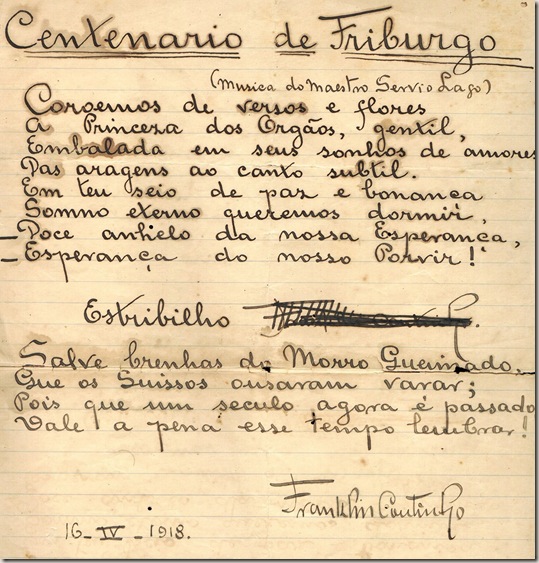 Centenario de Friburgo
(Musica do maestro Servio Lago)
Coroemos de versos e flores
A Princeza dos Orgãos, gentil,
Embalada em seus sonhos de amores
Das aragens ao canto subtil.
Em teu seio de paz e bonança
Somno eterno queremos dormir,
Doce anhelo da nossa Esperança,
Esperança do nosso Porvir!
Estribilho
Salve brenhas do Morro Queimado,
Que os Suissos ousaram varar;
Pois que um seculo agora é passado
Vale a pena esse tempo lembrar!
Franklin Coutinho
16-IV-1918.